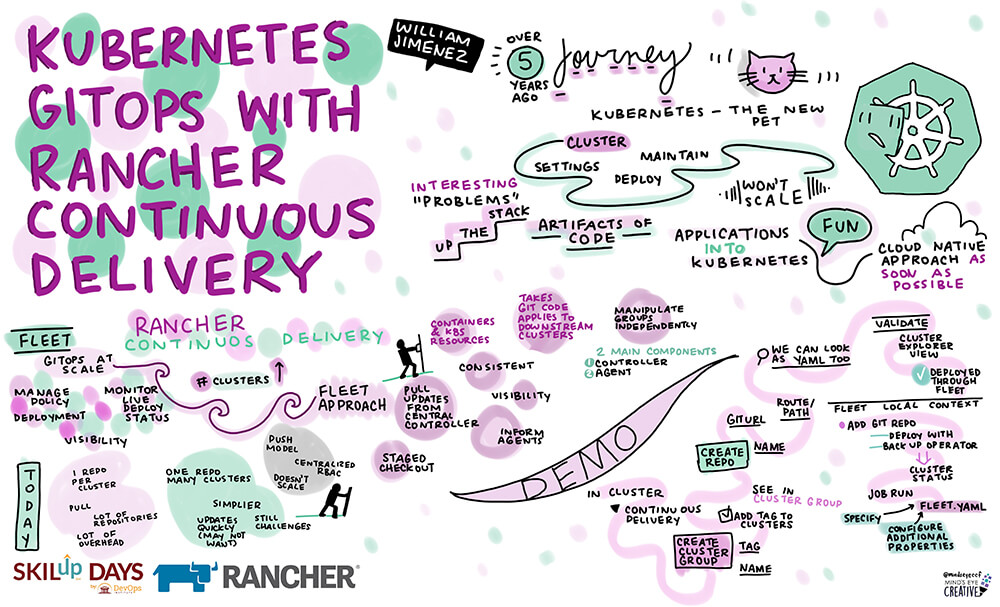 KUBERNETES
GITOPS WITH
RANCHER
CONTINUOUS
DELIVERY
WILLIAM
JIMENEZ
OVER
5
YEARS
AGO
Journey
KUBERNETES – THE NEW
PET
CLUSTER
SETTINGS
MAINTAIN
DEPLOY
WON'T
SCALE
INTERESTING
"PROBLEMS"
UP THE STACK
ARTIFACTS OF
CODE
APPLICATIONS
INTO
KUBERNETES
FUN
CLOUD NATIVE
APPROACH AS
SOON AS
POSSIBLE
FLEET
RANCHER
CONTINUOS DELIVERY
GITOPS AT
SCALE
MANAGE
POLICY
DEPLOYMENT
MONITOR
LIVE
DEPLOY
STATUS
VISIBILITY
# CLUSTERS
FLEET
APPROACH
CONTAINERS
& K8S
RESOURCES
TAKES
GIT CODE
APPLIES TO
DOWNSTREAM
CLUSTERS
MANIPULATE
GROUPS
INDEPENDENTLY
CONSISTENT
2 MAIN COMPONENTS
1 CONTROLLER
2 AGENT
PULL
UPDATES
FROM
CENTRAL
CONTROLLER
VISIBILITY
INFORM
AGENTS
STAGED
CHECKOUT
TODAY
1 REPO
PER
CLUSTER
PULL
LOT OF
REPOSITORIES
LOT OF
OVERHEAD
ONE REPO
MANY CLUSTERS
SIMPLIER
UPDATES
QUICKLY
(MAY NOT
WANT)
STILL
CHALLENGES
PUSH
MODEL
CENTRALIZED
RBAC
DOESN'T
SCALE
DEMO
IN CLUSTER
CONTINUOUS
DELIVERY
CREATE
CLUSTER
GROUP
NAME
TAG
ADD TAG TO
CLUSTERS
SEE IN
CLUSTER GROUP
CREATE
REPO
NAME
GITURL
ROUTE/
PATH
WE CAN LOOK
AS YAML TOO
VALIDATE
CLUSTER
EXPLORER
VIEW
DEPLOYED
THROUGH
FLEET
FLEET LOCAL CONTEXT
ADD GIT REPO
DEPLOY WITH
BACK UP OPERATOR
CLUSTER
STATUS
JOB RUN
FLEET.YAML
SPECIFY
CONFIGURE
ADDITIONAL
PROPERTIES
SKILup DAYS
by DevOps
INSTITUTE
RANCHER®
MIND'S EYE
CREATIVE